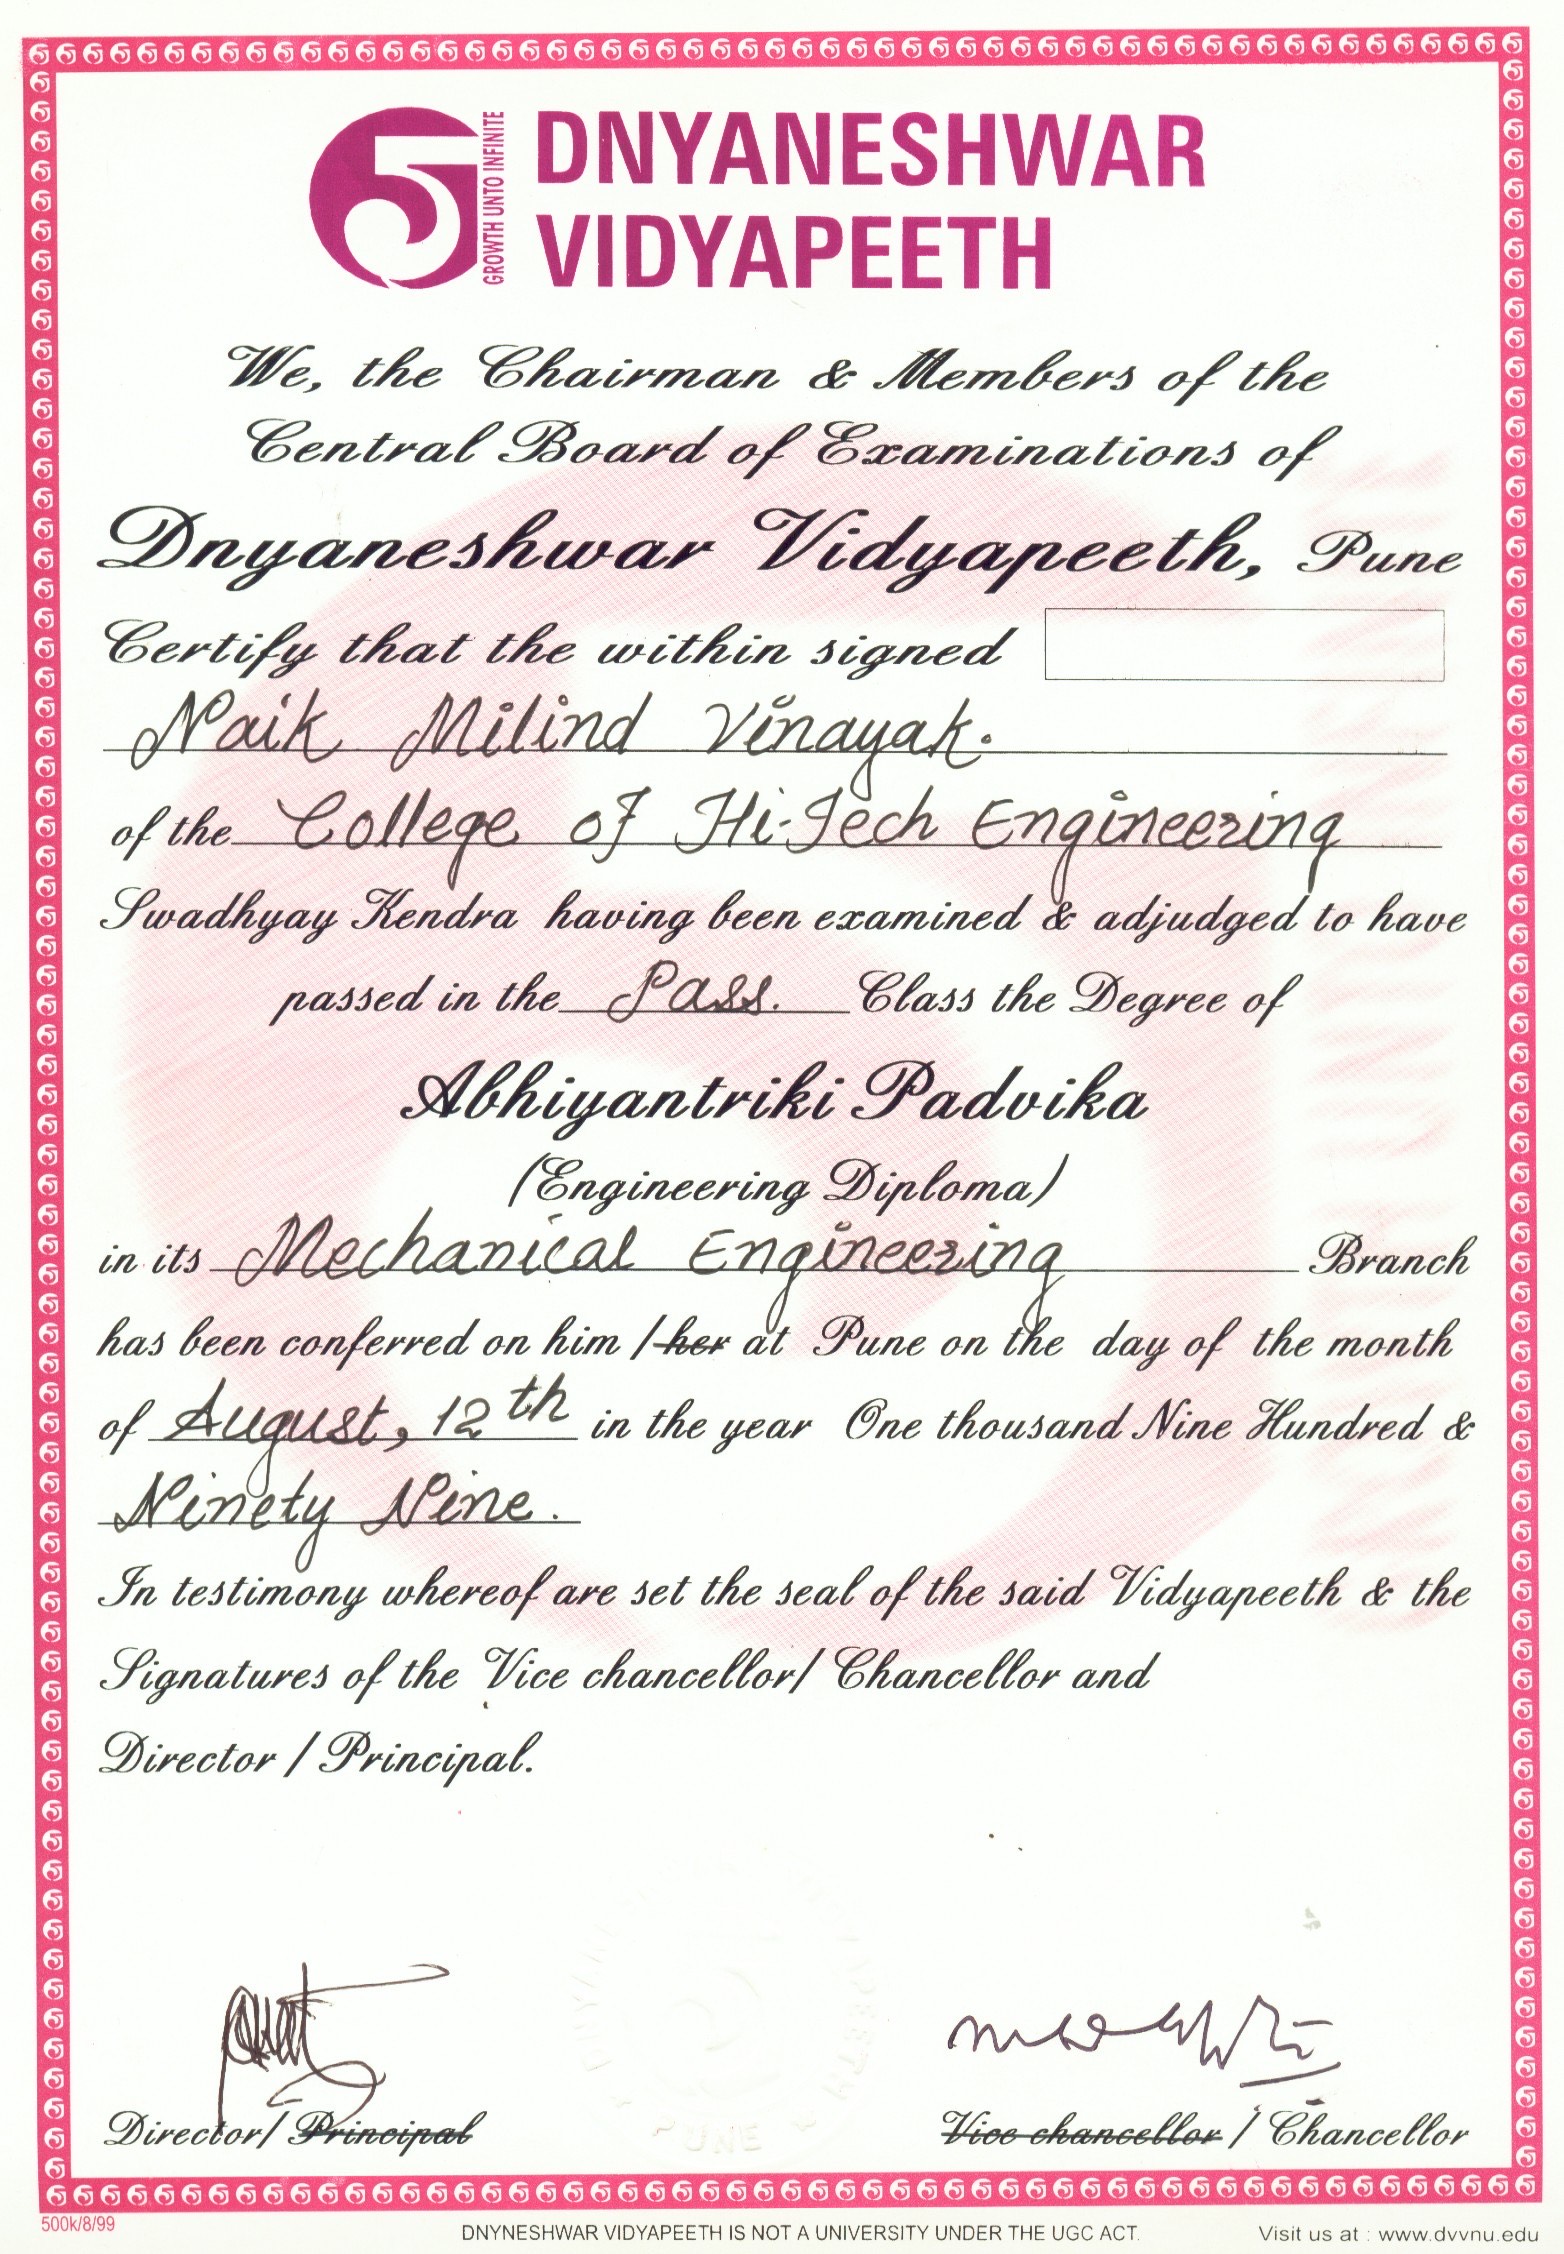 GROWTH UNTO INFINITE
DNYANESHWAR
VIDYAPEETH
We, the Chairman & Members of the
Central Board of Examinations of
Dnyaneshwar Vidyapeeth, Pune
Certify that the within signed
Naik Milind Vinayak.
of the College of Hi-Tech Engineering
Swadhyay Kendra having been examined & adjudged to have
passed in the Pass. Class the Degree of
Abhiyantriki Padvika
(Engineering Diploma)
in its Mechanical Engineering Branch
has been conferred on him / her at Pune on the day of the month
of August, 12th in the year One thousand Nine Hundred &
Ninety Nine.
In testimony whereof are set the seal of the said Vidyapeeth & the
Signatures of the Vice chancellor/ Chancellor and
Director / Principal.
Director/ Principal
Vice chancellor / Chancellor
500k/8/99
DNYNESHWAR VIDYAPEETH IS NOT A UNIVERSITY UNDER THE UGC ACT.
Visit us at : www.dvvnu.edu